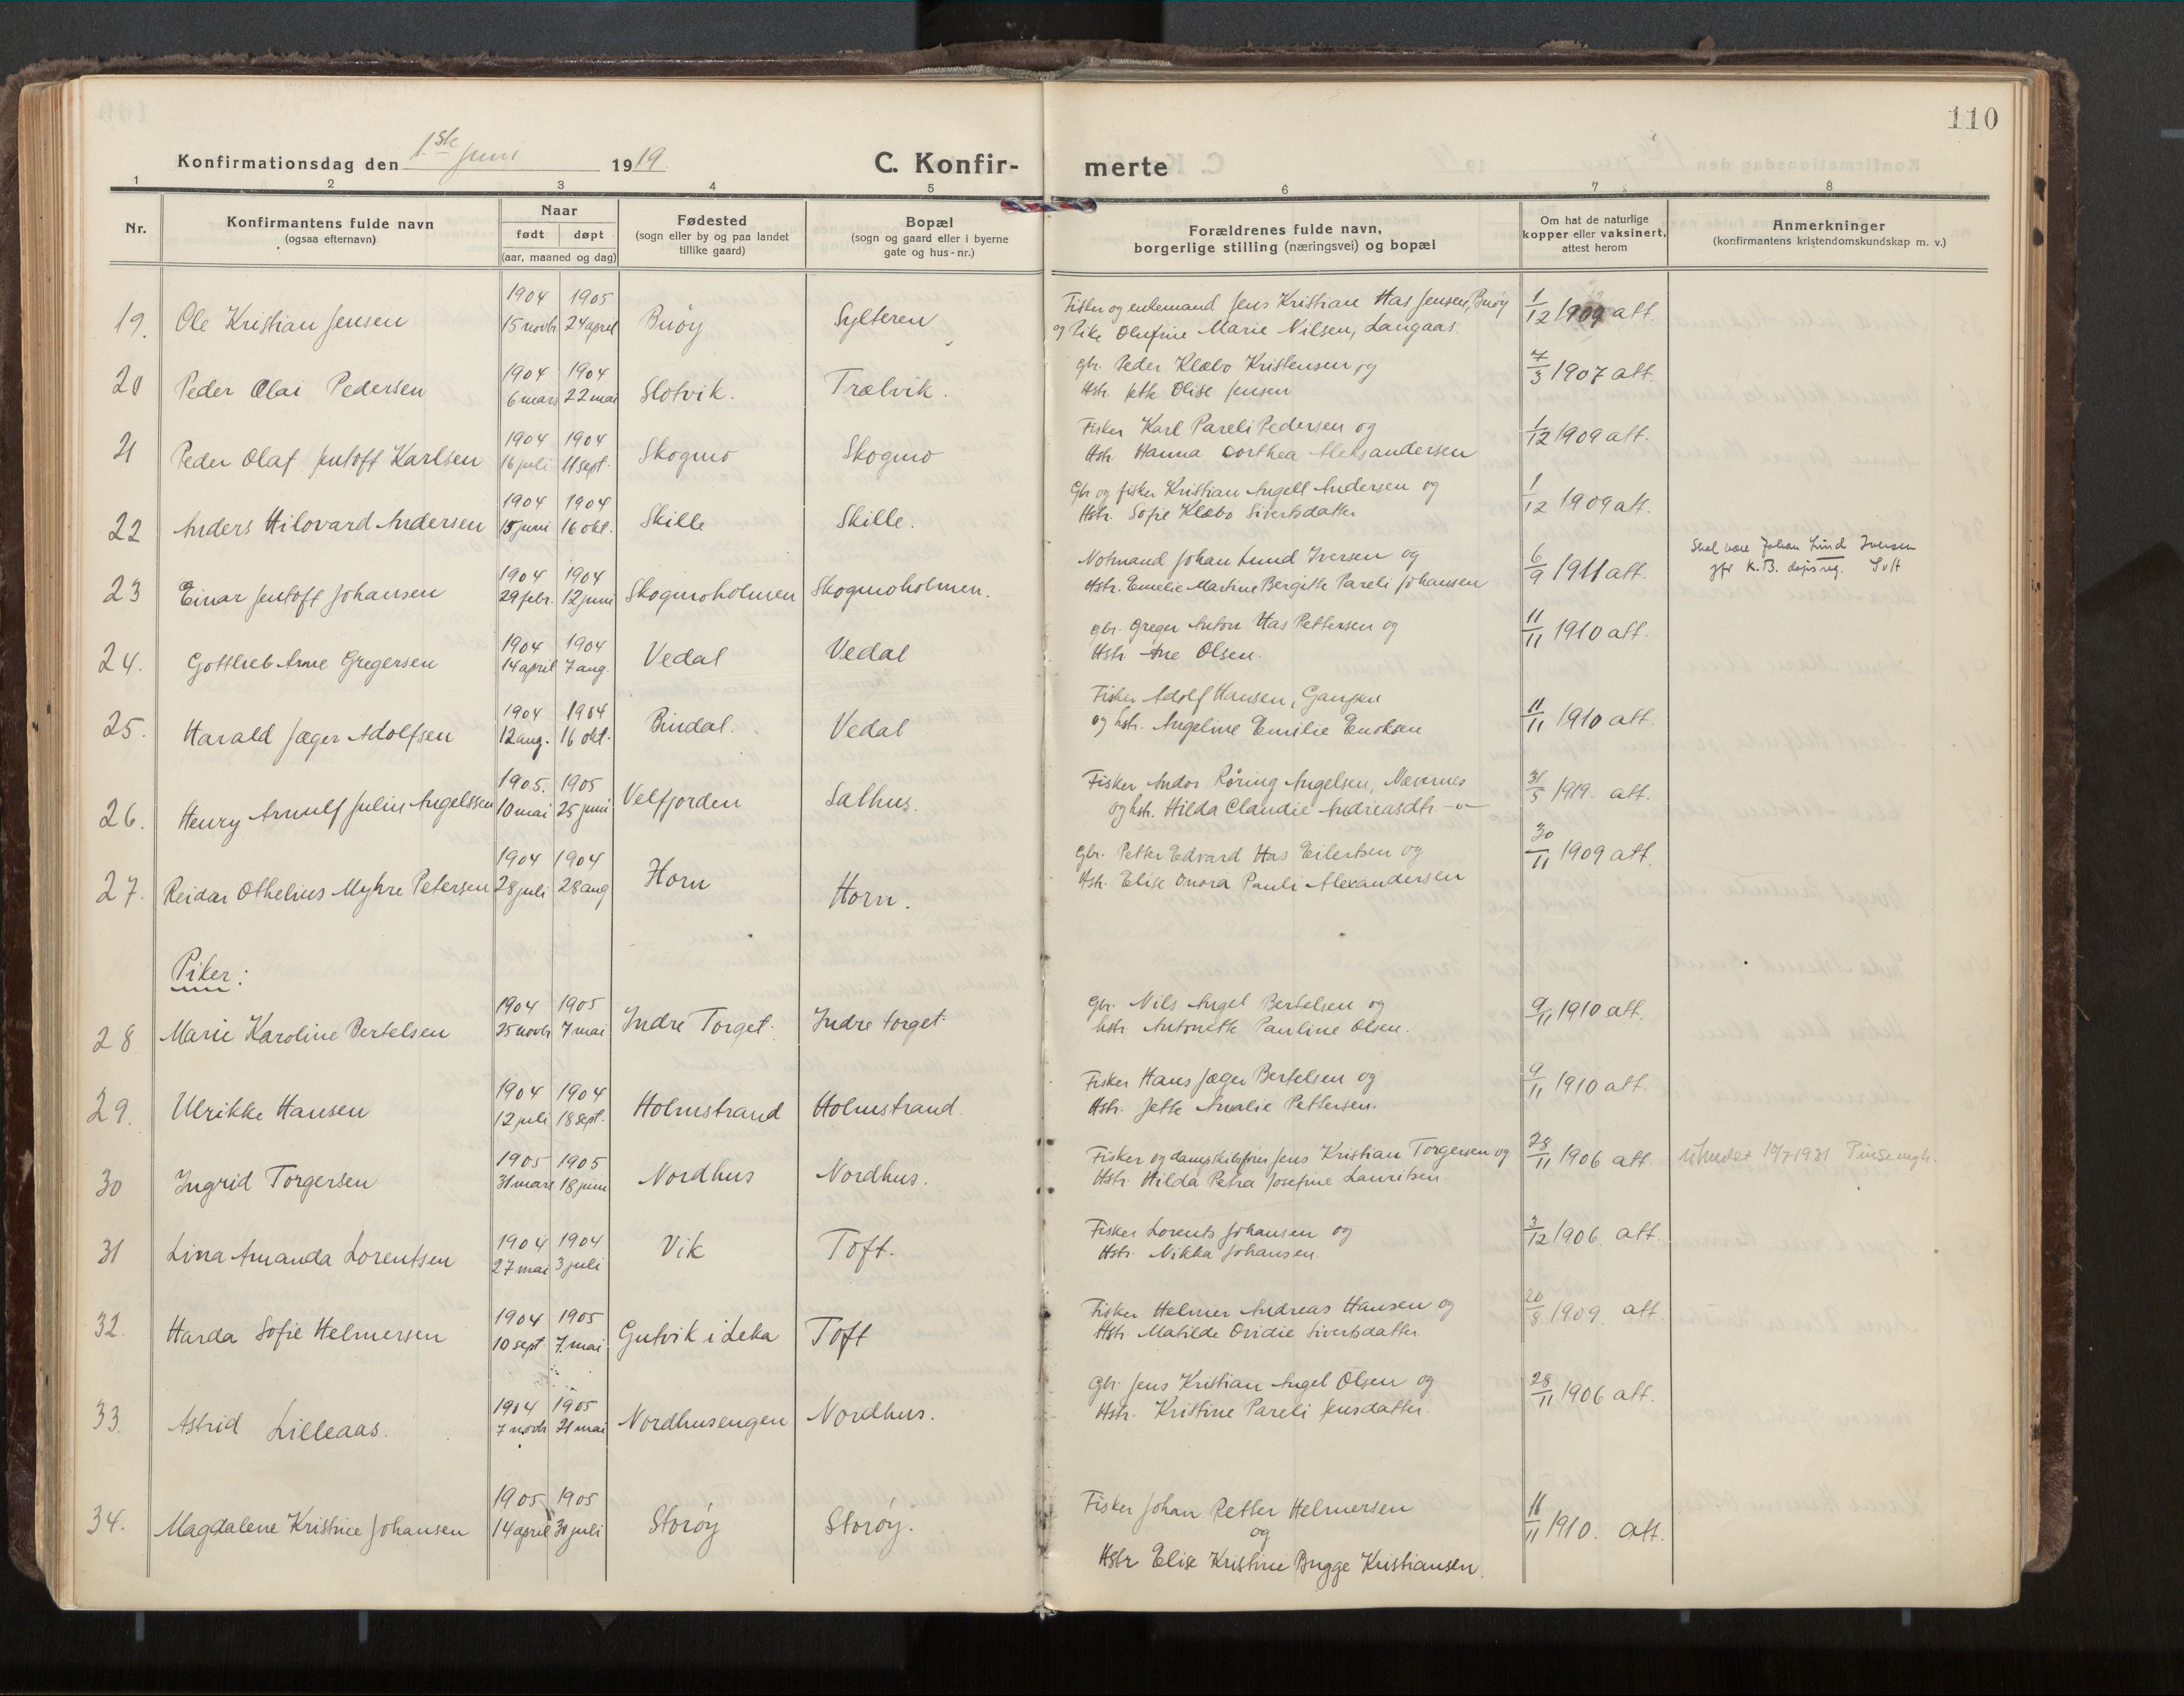 110
Konfirmationsdag den 1ste juni 1919
C. Konfirmerte
1 2 3 4 5 6 7 8
Nr.
Konfirmantens fulde navn
(ogsaa efternavn)
Naar
født døpt
(aar, maaned og dag)
Fødested
(sogn eller by og paa landet
tillike gaard)
Bopæl
(sogn og gaard eller i byerne
gate og hus-nr.)
Forældrenes fulde navn,
borgerlige stilling (næringsvei) og bopæl
Om hat de naturlige
kopper eller vaksinert,
attest herom
Anmerkninger
(konfirmantens kristendomskundskap m. v.)
1904 1905 Fisker og enkemand Jens Kristian Has Jensen, Buøy
19. Ole Kristian Jensen 15 novbr 24 april Buøy Sylteren og Pike Olufine Marie Nilsen, Langaas. 1/12 1909 att.
1904 1904 gbr. Peder Klæbo Kristensen og
20 Peder Olai Pedersen 6 mars 22 mai Slotvik. Trælvik. Hstr. Jette Olise Jensen 7/3 1907 att.
1904 1904 Fisker Karl Pareli Pedersen og
21 Peder Olaf Jentoft Karlsen 16 juli 11 sept. Skogmo Skogmo Hstr. Hanna Dorthea Aleksandersen 1/12 1909 att.
1904 1904 Gbr og fisker Kristian Angell Andersen og
22 Anders Hilovard Andersen 15 juni 16 okt. Skille Skille. Hstr. Sofie Klæbo Sivertsdatter 1/12 1909 att.
1904 1904 Notmand Johan Lund Iversen og Skal være Johan Lind Iversen
23 Einar Jentoft Johansen 29 febr. 12 juni Skogmoholmen Skogmoholmen. Hstr. Emelie Martine Bergitte Pareli Johansen 6/9 1911 att. jfr K.B. dåpsreg.
1904 1904 gbr. Greger Anton Has Pettersen og
24. Gottlieb Arne Gregersen 14 april 7 aug. Vedal Vedal Hstr Ane Olsen. 11/11 1910 att.
1904 1904 Fisker Adolf Hansen,
25. Harald Jæger Adolfsen 12 aug. 16 okt. Bindal. Vedal og hstr. Angeline Emilie Enoksen 11/11 1910 att.
1905. 1905 Fisker Andor Røring Angelsen, Nævernes
26. Henry Arnulf Julius Angelssen 10 mai 25 juni Velfjorden Salhus. og hstr. Hilda Claudie Andreasdtr. -"- 31/5 1919. att.
1904 1904 Gbr. Petter Edvard Has Eilertsen og
27. Reidar Othelius Myhre Petersen 28 juli 28 aug Horn Horn. Hstr. Elise Onora Pauli Alexandersen 30/11 1909 att.
Piker:
1904 1905 Gbr. Nils Angel Bertelsen og
28 Marie Karoline Bertelsen 25 novbr 7 mai Indre Torget. Indre torget. hstr Antonette Pauline Olsen. 9/11 1910 att.
1904 1904 Fisker Hans Jæger Bertelsen og
29. Ulrikke Hansen 12 juli 18 sept. Holmstrand Holmstrand. Hstr. Jette Amalie Pettersen. 9/11 1910 att.
1905 1905 Fisker og dampskibsfører Jens Kristian Torgersen og
30 Ingrid Torgersen 31 mars 18 juni Nordhus Nordhus. Hstr. Hilda Petra Josefine Lauritsen. 28/11 1906 att. utmeldt 10/7 1931 Pinsemgh.
1904 1904 Fisker Lorents Johansen og
31 Lina Amanda Lorentsen 27 mai 3 juli Vik Toft. Hstr. Nikka Johansen. 3/12 1906 att.
1904 1905 Fisker Helmer Andreas Hansen og
32. Harda Sofie Helmersen 10 sept 7. mai Gutvik i Leka Toft Hstr Matilde Ovidie Sivertsdatter 20/8 1909. att
1904 1905 Gbr. Jens Kristian Angel Olsen og
33. Astrid Lilleaas. 7 novbr 21 mai Nordhusengen Nordhus. Hstr. Kristine Pareli Jensdatter. 28/11 1906 att.
1905 1905 Fisker Johan Petter Helmersen
34. Magdalene Kristine Johansen 14 april 30 juli Storøy Storøy. og 11/11 1910. att.
Hstr Elise Kristine Bugge Kristiansen.